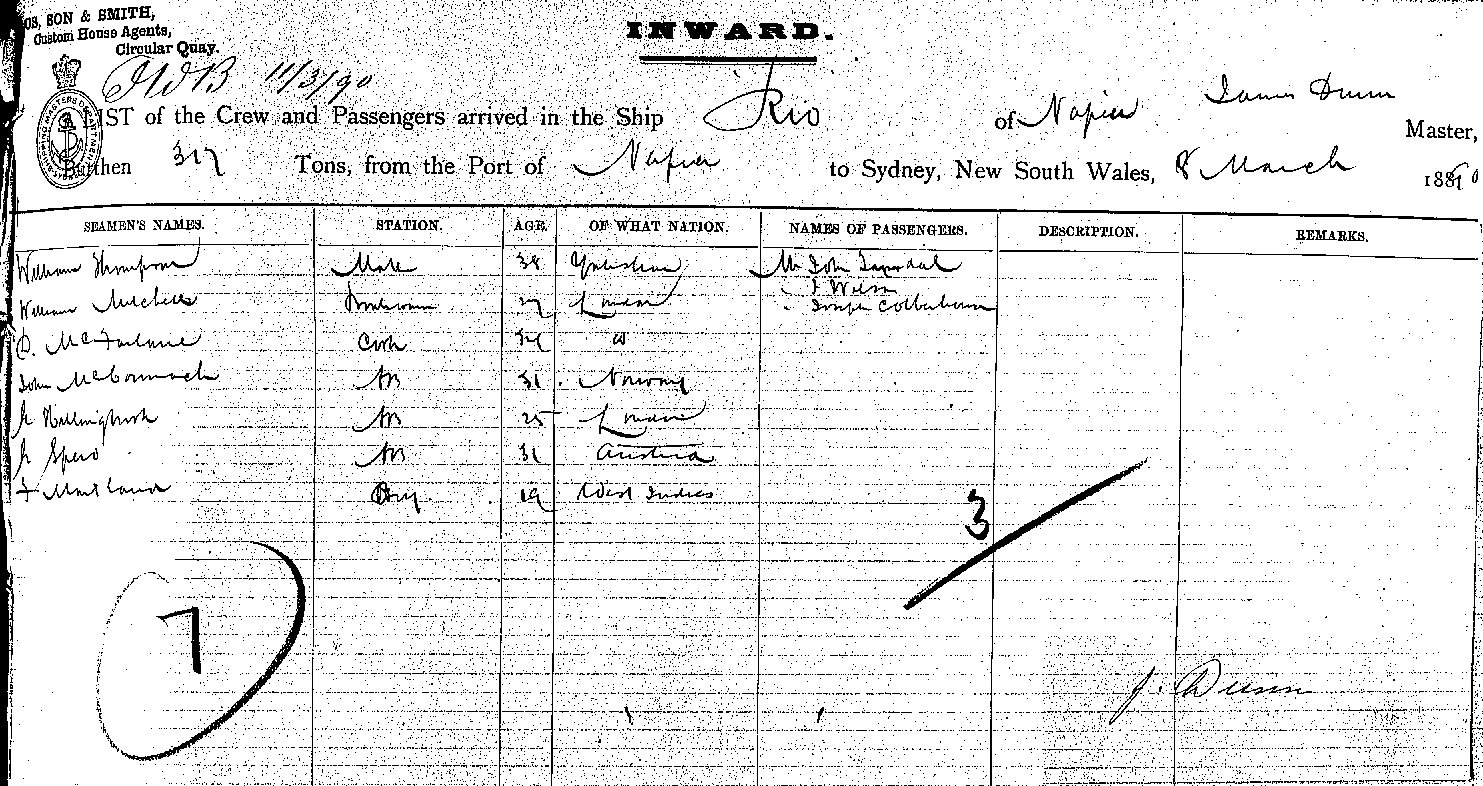 SON & SMITH,
Custom House Agents,
Circular Quay.
INWARD.
11/3/90
LIST of the Crew and Passengers arrived in the Ship Rio of Napier James Dunn Master,
Burthen 317 Tons, from the Port of Napier to Sydney, New South Wales, 8 March 1890
SEAMEN'S NAMES. STATION. AGE. OF WHAT NATION. NAMES OF PASSENGERS. DESCRIPTION. REMARKS.
William Thompson Mate 38 Yorkshire Mr John
William Mitchell 27 London J Wilson
Joseph
D. McFarlane Cook
John McCormack AB 31 Norway
A Hollingbrook AB 25 London
A Spero AB 31 Austria
F Maitland Boy 19 West Indies
3
7
J. Dunn